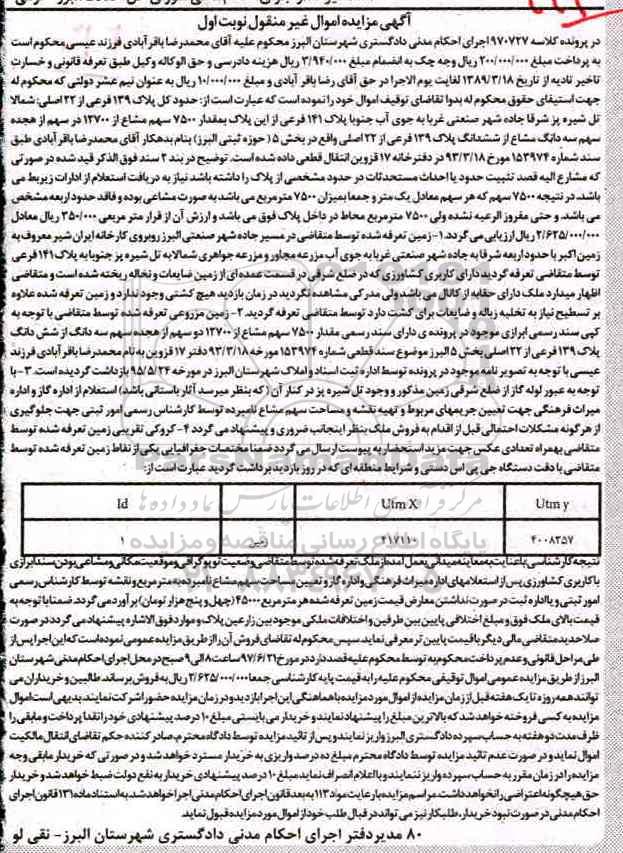 آگهی مزایده اموال غیر منقول نوبت اول
در پرونده کلاسه ۹۷۰۷۲۷ اجرای احکام مدنی دادگستری شهرستان البرز محکوم علیه آقای محمدرضا باقرآبادی فرزند عیسی محکوم است
به پرداخت مبلغ ۲۰۰/۰۰۰/۰۰۰ ریال وجه چک به انضمام مبلغ ۳/۹۴۰/۰۰۰ ریال هزینه دادرسی و حق الوکاله وکیل طبق تعرفه قانونی و خسارت
تاخیر تادیه از تاریخ ۱۳۸۹/۳/۱۸ لغایت یوم الاجرا در حق آقای رضا باقر آبادی و مبلغ ۱۰/۰۰۰/۰۰۰ ریال به عنوان نیم عشر دولتی که محکوم له
جهت استیفای حقوق محکوم له بدوا تقاضای توقیف اموال خود را نموده است که عبارت است از: حدود کل پلاک ۱۳۹ فرعی از ۲۲ اصلی: شمالا
تل شیره پز شرقا جاده شهر صنعتی غربا به جوی آب جنوبا پلاک ۱۴۱ فرعی از این پلاک بمقدار ۷۵۰۰ سهم مشاع از ۱۲۷۰۰ در سهم از هجده
سهم سه دانگ مشاع از ششدانگ پلاک ۱۳۹ فرعی از ۲۲ اصلی واقع در بخش ۵ ( حوزه ثبتی البرز) بنام بدهکار آقای محمدرضا باقرآبادی طبق
سند شماره ۱۵۳۹۷۴ مورخ ۹۳/۳/۱۸ در دفترخانه ۱۷ قزوین انتقال قطعی داده شده است. توضیح در بند ۲ سند فوق الذکر قید شده در صورتی
که مشارع الیه قصد تثبیت حدود یا احداث مستحدثات در حدود مشخصی از پلاک را داشته باشد نیاز به دریافت استعلام از ادارات زیربط می
باشد. در نتیجه ۷۵۰۰ سهم که هر سهم معادل یک متر و جمعا بمیزان ۷۵۰۰ مترمربع می باشد به صورت مشاعی بوده و فاقد حدود اربعه مشخص
می باشد. و حتی مفروز الرعیه نشده ولی ۷۵۰۰ مترمربع محاط در داخل پلاک فوق می باشد و ارزش آن از قرار متر مربعی ۳۵۰/۰۰۰ ریال معادل
۲/۶۲۵/۰۰۰/۰۰۰ ریال ارزیابی می گردد. ۱- زمین تعرفه شده توسط متقاضی در مسیر جاده شهر صنعتی البرز روبروی کارخانه ایران شیر معروف به
زمین اکبر با حدود اربعه شرقا به جاده شهر صنعتی غربا به جوی آب مزرعه مجاور و مزرعه جواهری شمالا به تل شیره پز جنوبا به پلاک ۱۴۱ فرعی
توسط متقاضی تعرفه گردید دارای کاربری کشاورزی که در ضلع شرقی در قسمت عمده ای از زمین ضایعات و نخاله ریخته شده است و متقاضی
اظهار میدارد ملک دارای حقابه از کانال می باشد ولی مدرکی مشاهده نگردید در زمان بازدید هیچ کشتی وجود ندارد و زمین تعرفه شده علاوه
بر تسطیح نیاز به تخلیه زباله و ضایعات برای کشت دارد توسط متقاضی تعرفه گردید. ۲- زمین مزروعی تعرفه شده توسط متقاضی با توجه به
کپی سند رسمی ابرازی موجود در پرونده ی دارای سند رسمی مقدار ۷۵۰۰ سهم مشاع از ۱۲۷۰۰ دو سهم از هجده سهم سه دانگ از شش دانگ
پلاک ۱۳۹ فرعی از ۲۲ اصلی بخش ۵ البرز موضوع سند قطعی شماره ۱۵۳۹۷۴ مورخه ۹۳/۳/۱۸ دفتر ۱۷ قزوین به نام محمدرضا باقرآبادی فرزند
عیسی با توجه به تصویر نامه موجود در پرونده توسط اداره ثبت اسناد و املاک شهرستان البرز در مورخه ۹۵/۵/۲۴ بازداشت گردیده است. ۳- با
توجه به عبور لوله گاز از ضلع شرقی زمین مذکور و وجود تل شیره پز در کنار آن (که بنظر میرسد آثار باستانی باشد) استعلام از اداره گاز و اداره
میراث فرهنگی جهت تعیین حریمهای مربوط و تهیه نقشه و مساحت سهم مشاع نامبرده توسط کارشناس رسمی امور ثبتی جهت جلوگیری
از هرگونه مشکلات احتمالی قبل از اقدام به فروش ملک بنظر اینجانب ضروری و پیشنهاد می گردد ۴- کروکی تقریبی زمین تعرفه شده توسط
متقاضی بهمراه تعدادی عکس جهت مزید استحضار به پیوست ارسال می گردد ضمنا مختصات جغرافیایی یکی از نقاط زمین تعرفه شده توسط
متقاضی با دقت دستگاه جی پی اس دستی و شرایط منطقه ای که در روز بازدید برداشت گردید عبارت است از:
Id Utm X Utm y
۱ زمین ۴۱۷۱۱۰ ۴۰۰۸۳۵۷
نتیجه کارشناسی: با عنایت به معاینه میدانی بعمل آمده از ملک تعرفه شده توسط متقاضی وضعیت توپوگرافی و موقعیت مکانی و مشاعی بودن سند ابرازی
با کاربری کشاورزی پس از استعلامهای اداره میراث فرهنگی و اداره گاز و تعیین مساحت سهم مشاع نامبرده به متر مربع و نقشه توسط کارشناس رسمی
امور ثبتی و یا اداره ثبت در صورت نداشتن معارض قیمت زمین تعرفه شده هر متر مربع ۴۵۰۰۰ (چهل و پنج هزار تومان) برآورد می گردد. ضمنا با توجه به
قیمت بالای ملک فوق و مبلغ اختلافی پایین بین طرفین و اختلافات ملکی موجود بین زارعین پلاک و موارد فوق الاشاره پیشنهاد می گردد در صورت
صلاحدید متقاضی مالی دیگر با قیمت پایین تر معرفی نماید. سپس محکوم له تقاضای فروش آن را از طریق مزایده عمومی نموده است که این اجرا پس از
طی مراحل قانونی و عدم پرداخت محکوم به توسط محکوم علیه قصد دارد در مورخ ۹۷/۶/۲۱ ساعت ۸ الی ۹ صبح در محل اجرای احکام مدنی شهرستان
البرز از طریق مزایده عمومی اموال توقیفی محکوم علیه را به قیمت پایه کارشناسی جمعا ۲/۶۲۵/۰۰۰/۰۰۰ ریال به فروش برساند. طالبین و خریداران می
توانند همه روزه تا یک هفته قبل از زمان مزایده از اموال مورد مزایده با هماهنگی این اجرا بازدید و در زمان مزایده حضور اشرکت نمایند. بدیهی است اموال
مزایده به کسی فروخته خواهد شد که بالاترین مبلغ را پیشنهاد نمایند و خریدار می بایستی مبلغ ۱۰ درصد پیشنهادی خود را نقدا پرداخت و مابقی را
ظرف مدت دو هفته به حساب سپرده دادگستری البرز واریز نمایند و پس از تائید مزایده توسط دادگاه محترم، صادر کننده حکم تقاضای انتقال مالکیت
اموال نماید و در صورت عدم تائید مزایده توسط دادگاه محترم مبلغ ده درصد واریزی به خریدار مسترد خواهد شد و در صورتی که خریدار مابقی وجه
مزایده را در زمان مقرر به حساب سپرده واریز ننمایند و یا اعلام انصراف نماید مبلغ ۱۰ درصد پیشنهادی خریدار به نفع دولت ضبط خواهد شد و خریدار
حق هیچگونه اعتراضی را نخواهد داشت. مراسم مزایده با رعایت مواد ۱۱۳ به بعد قانون اجرای احکام مدنی اجرا خواهد شد. به استناد ماده ۱۳۱ قانون اجرای
احکام مدنی در صورت نبود خریدار، طلبکار نیز می تواند در قبال طلب خود از اموال مورد مزایده قبول نماید.
۸۰ مدیر دفتر اجرای احکام مدنی دادگستری شهرستان البرز - نقی لو